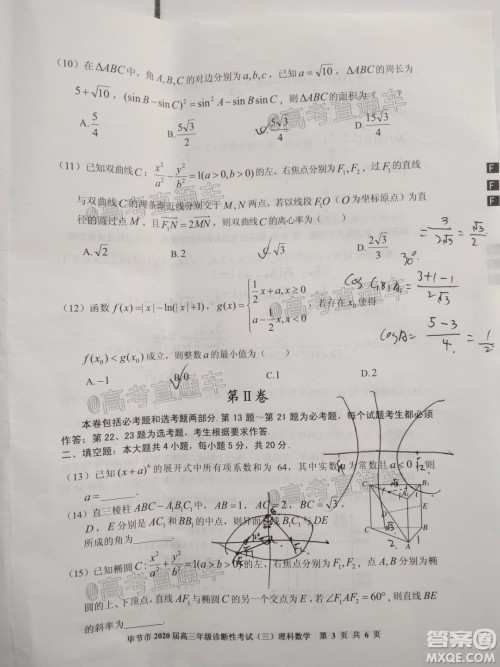 (10) 在 ΔABC 中，角 A,B,C 的对边分别为 a,b,c，已知 a=√10，ΔABC 的周长为
5+√10，(sin B−sin C)²=sin² A−sin B sin C，则 ΔABC 的面积为（ ）
A. 5/4 B. 5√3/4 C. 5√3/2 D. 15√3/4
(11) 已知双曲线 C: x²/a² − y²/b² =1(a>0,b>0) 的左、右焦点分别为 F₁,F₂，过 F₁ 的直线
与双曲线 C 的两条渐近线分别交于 M,N 两点，若以线段 F₁O（O 为坐标原点）为直
径的圆过点 M，且 F₁N=2MN，则双曲线 C 的离心率为（ ）
A. √2 B. 2 C. √3 D. 2√3/3
= 3/2√3 = √3/2
30°
(12) 函数 f(x)=|x|−ln(|x|+1)，g(x)={ 1/2 x+a, x≥0
a−1/2 x, x<0 ，若存在 x₀ 使得
3+1−1/2√3
f(x₀)<g(x₀) 成立，则整数 a 的最小值为（ ）
cosA= 5−3/4 = 1/2
A. −1 B. 0 C. 1 D. 2
第Ⅱ卷
本卷包括必考题和选考题两部分. 第 13 题～第 21 题为必考题，每个试题考生都必须
作答；第 22、23 题为选考题，考生根据要求作答.
二、填空题：本大题共 4 小题，每小题 5 分，共 20 分.
(13) 已知 (x+a)⁶ 的展开式中所有项系数和为 64，其中实数 a 为常数且 a<0，则
a=
(14) 直三棱柱 ABC−A₁B₁C₁ 中，AB=1，AC=2，BC=√3，
D，E 分别为 的中点，则异面直线 B₁C₁ 与 DE 所
成的角为
(15) 已知椭圆 C: x²/a² + y²/b² =1(a>b>0) 的左、右焦点分别为 F₁,F₂，A,B 分别为椭
圆的上、下顶点，直线 AF₂ 与椭圆 C 的另一个交点为 E，若∠F₁AF₂=60°，则直线 BE
的斜率为
毕节市 2020 届高三年级诊断性考试（三）理科数学 第 3 页 共 6 页
@高考直通车
@高考直通车
@高考直通车
@高考直通车
答案圈
MXQE.COM